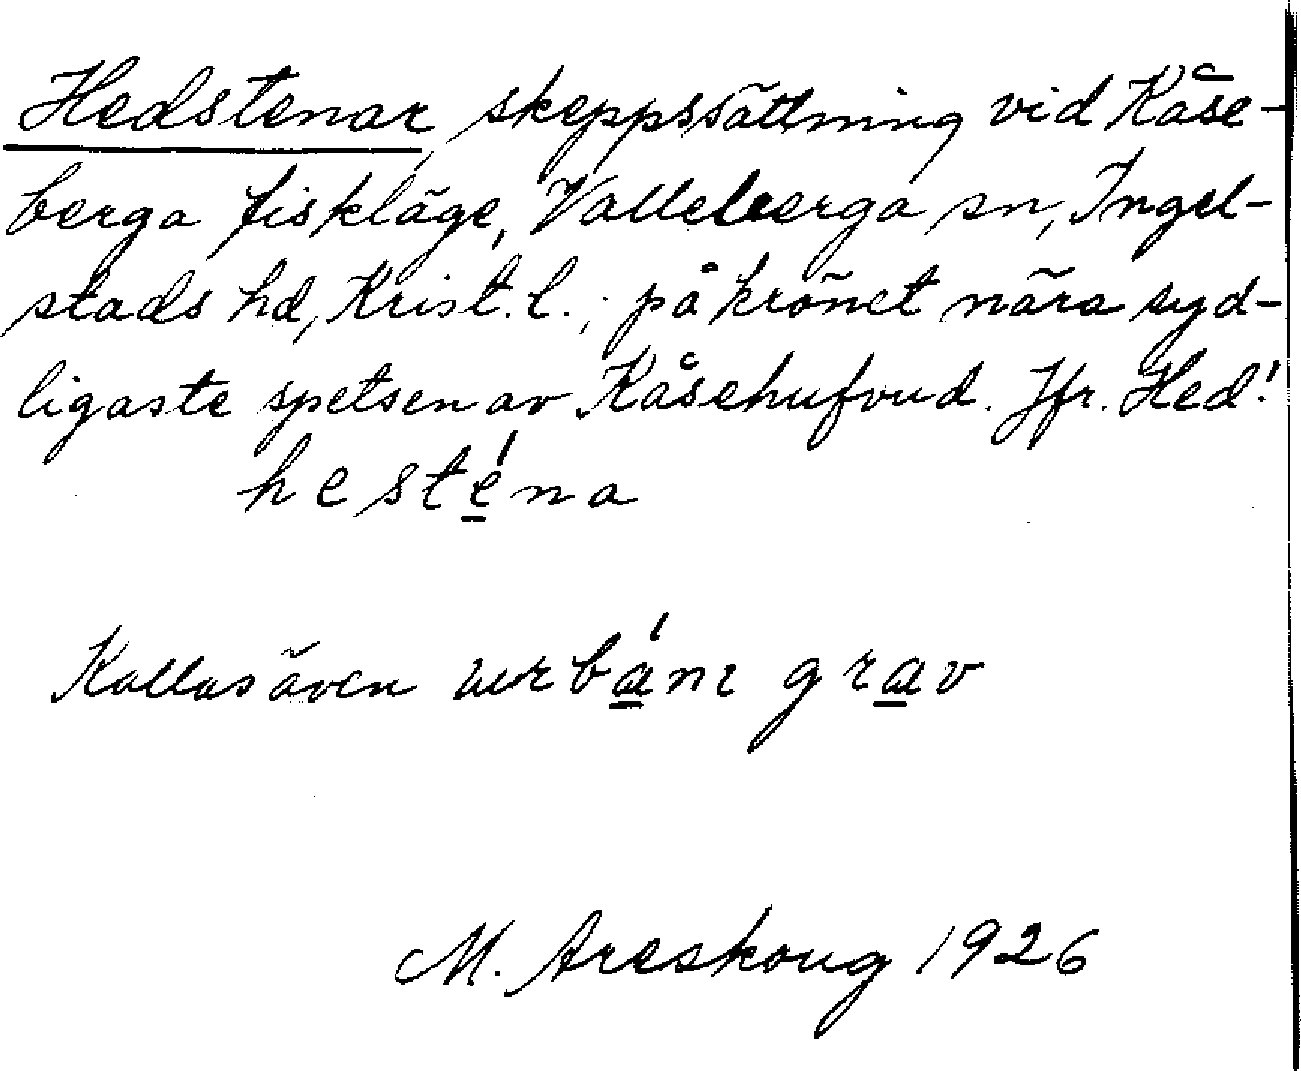 Hedstenar, skeppssättning vid Kåse-
berga fiskläge, Valleberga sn, Ingel-
stads hd, Krist. l.; på krönet nära syd-
ligaste spetsen av Kåsehufvud. Jfr. Hed!
hesténa
Kallas även urbánı grav
M. Areskoug 1926